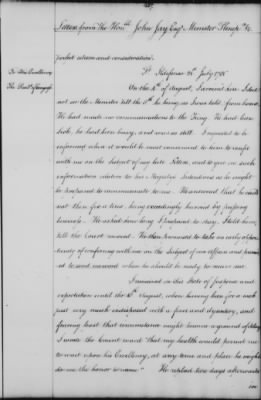 Letter from the Honble John Jay Esqr Minister Plenipo &c
perfect esteem and consideration.
To His Excellency
St. Ildefonso July 1780
On the of August, I wrote him I did
not see the Minister till the 5th he being as I was told from home.
He had made no communications to the King. He had been
sick, he had been busy, and was still. I requested to be
informed when it would be most convenient to him to confer
with me on the subject of my late Letter, and to give me such
information relative to his Majesty's Intentions as he might
be prepared to communicate to me. He answered that he could
not then fix a time, being exceedingly hurried by pressing
business. He asked how long I proposed to stay. I told him,
till the Court moved. He then promised to take an early oppor-
tunity of conferring with me on the subject of our affairs and promis-
ed to send me word when he should be ready to receive me.
I remained in this State of suspense and
expectation until the August, when having been for a week
past very much indisposed with a fever and dysentery, and
fearing lest that circumstance might become a ground of delay
I wrote the Count word that my health would permit me
to wait upon his Excellency, at any time and place he might
do me the honor to name. He replied two days afterwards